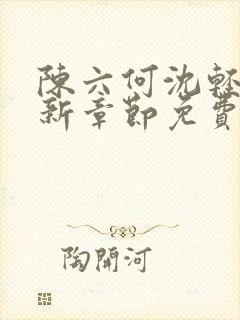 陳六何沈輕
新章節免費
陶開河